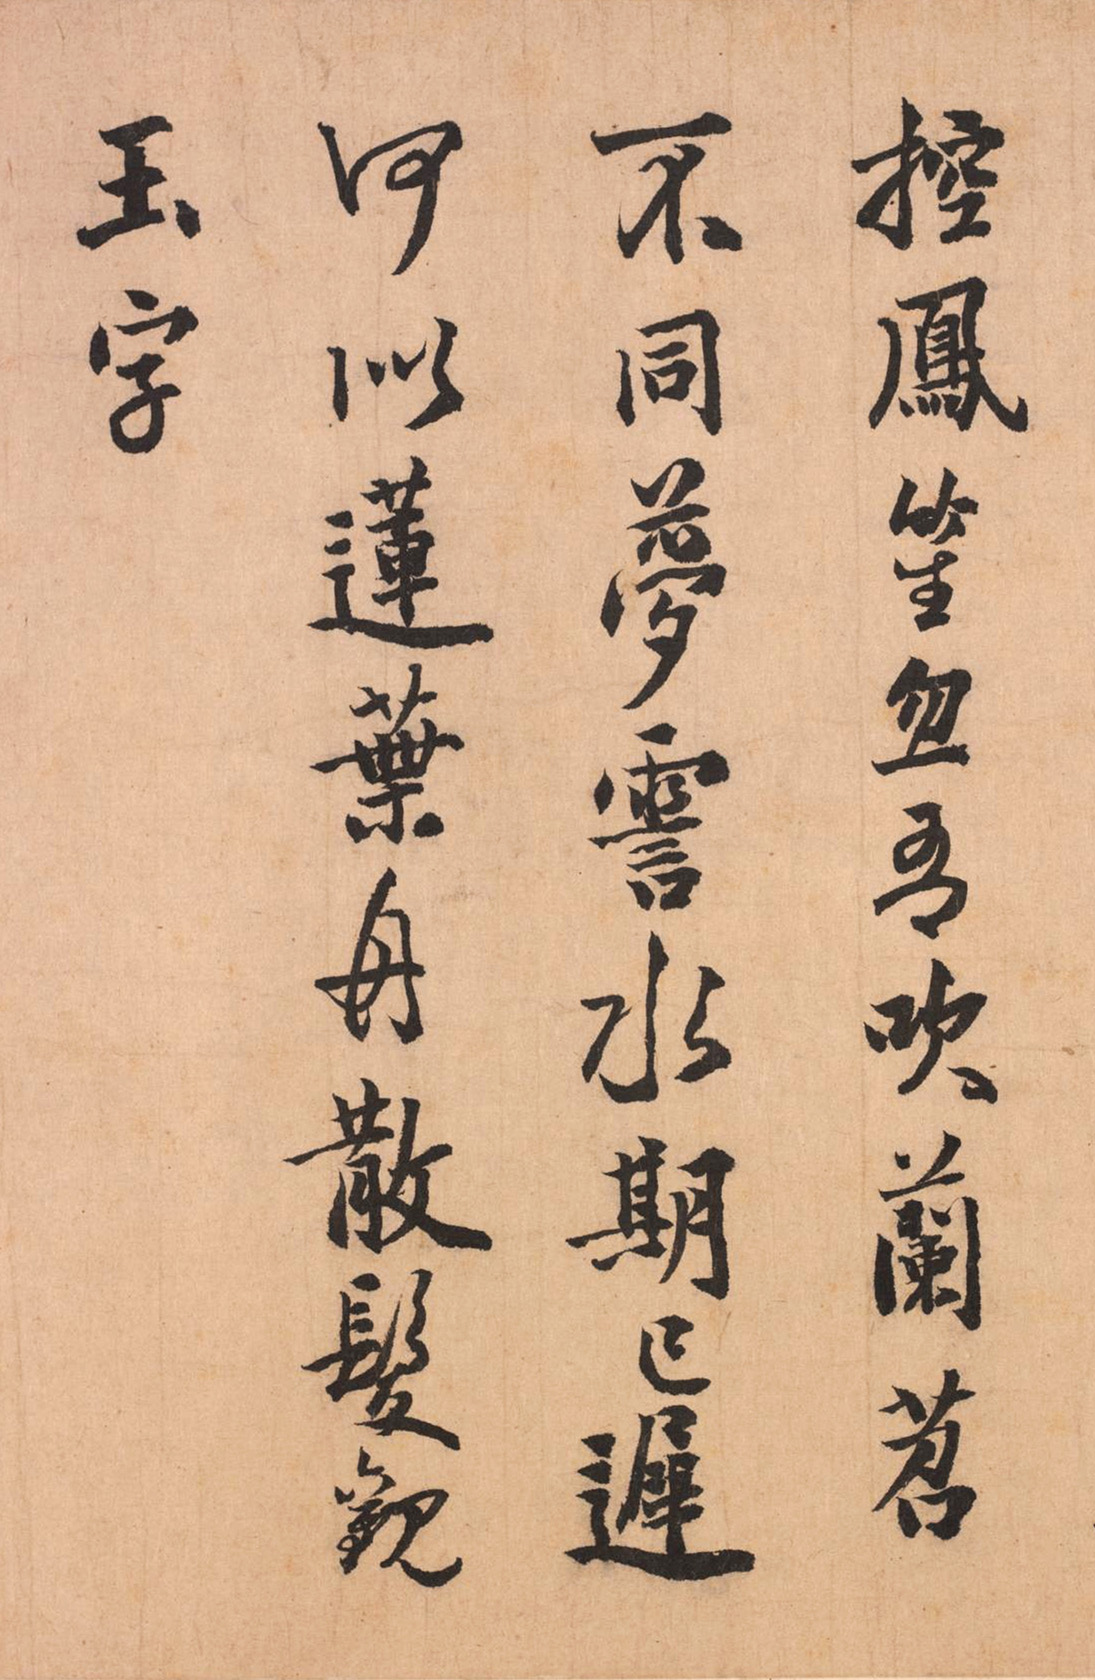 控鳳笙吾吹蘭苕
不同夢霅水期已遲
何似蓮葉舟散髮觀
玉字